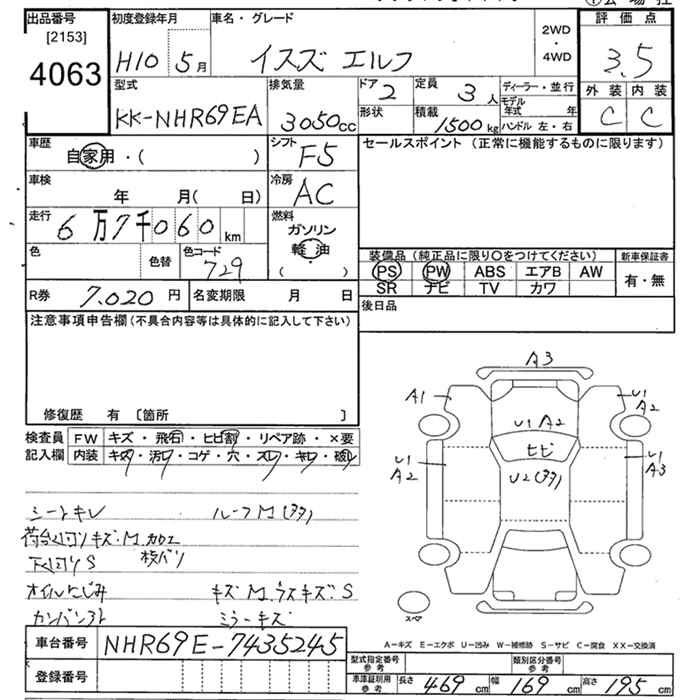 出品番号 [2153] 4063
初度登録年月 H10 5月
車名・グレード イスズ エルフ
2WD・4WD
評価点 3.5
外装 C 内装 C
型式 KK-NHR69EA
排気量 3050cc
ドア 2 形状
定員 3人
積載 1500kg
ディーラー・並行
モデル年式 年
ハンドル 左・右
車歴 自家用・( )
シフト F5
セールスポイント(正常に機能するものに限ります)
車検 年 月( 日)
冷房 AC
走行 6万7千060km
燃料 ガソリン 軽油 ( )
色 色替 色コード 729
装備品(純正品に限り○をつけてください)
PS PW ABS エアB AW
SR ナビ TV カワ
新車保証書 有・無
R券 7.020円 名変期限 月 日
後日品
注意事項申告欄(不具合内容等は具体的に記入して下さい)
修復歴 有〔箇所 〕
検査員記入欄 FW キズ・飛石・ヒビ割・リペア跡・×要
内装 キズ・汚レ・コゲ・穴・スレ・キレ・破レ
A3
A1 U1 A2
U1 A2
ヒビ
U1 A2 U2 U1 A3
スペア
シートキレ ルーフM
下回りS
オイルにじみ キズM.ラスキズ:S
カンバン ミラーキズ
A-キズ E-エクボ U-凹み W-補修跡 S-サビ C-腐食 XX-交換済
車台番号 NHR69E-7435245
登録番号
型式指定番号参考 類別区分番号参考
車庫証明用参考 長さ 469cm 幅 169cm 高さ 195cm